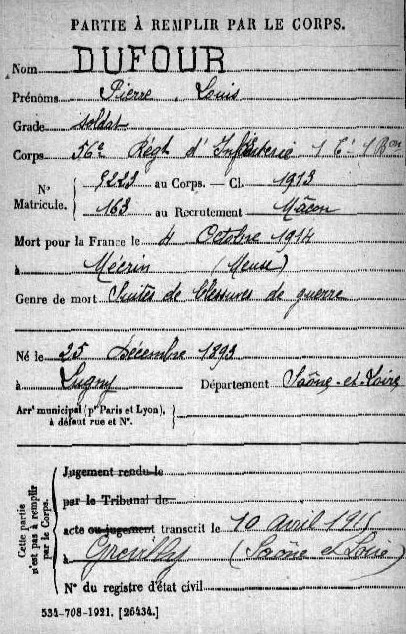 PARTIE À REMPLIR PAR LE CORPS.
Nom DUFOUR
Prénoms Pierre Louis
Grade soldat
Corps 56e Régt d'Infanterie
N° Matricule. 9223 au Corps. — Cl. 1913
163 au Recrutement Mâcon
Mort pour la France le 4 Octobre 1914
à Mécrin (Meuse)
Genre de mort Suites de blessures de guerre
Né le 25 Décembre 1893
à Lugny Département Saône-et-Loire
Arrt municipal (pr Paris et Lyon), à défaut rue et N°.
Cette partie n'est pas à remplir par le Corps.
Jugement rendu le
par le Tribunal de
acte ou jugement transcrit le 10 avril 1915
à Grevilly (Saône et Loire)
N° du registre d'état civil
534-708-1921. [26434.]